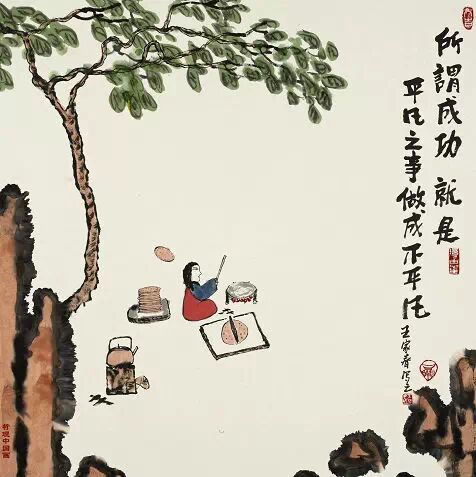 所謂成功 就是
平凡之事做成不平凡
王家春写之
中国画